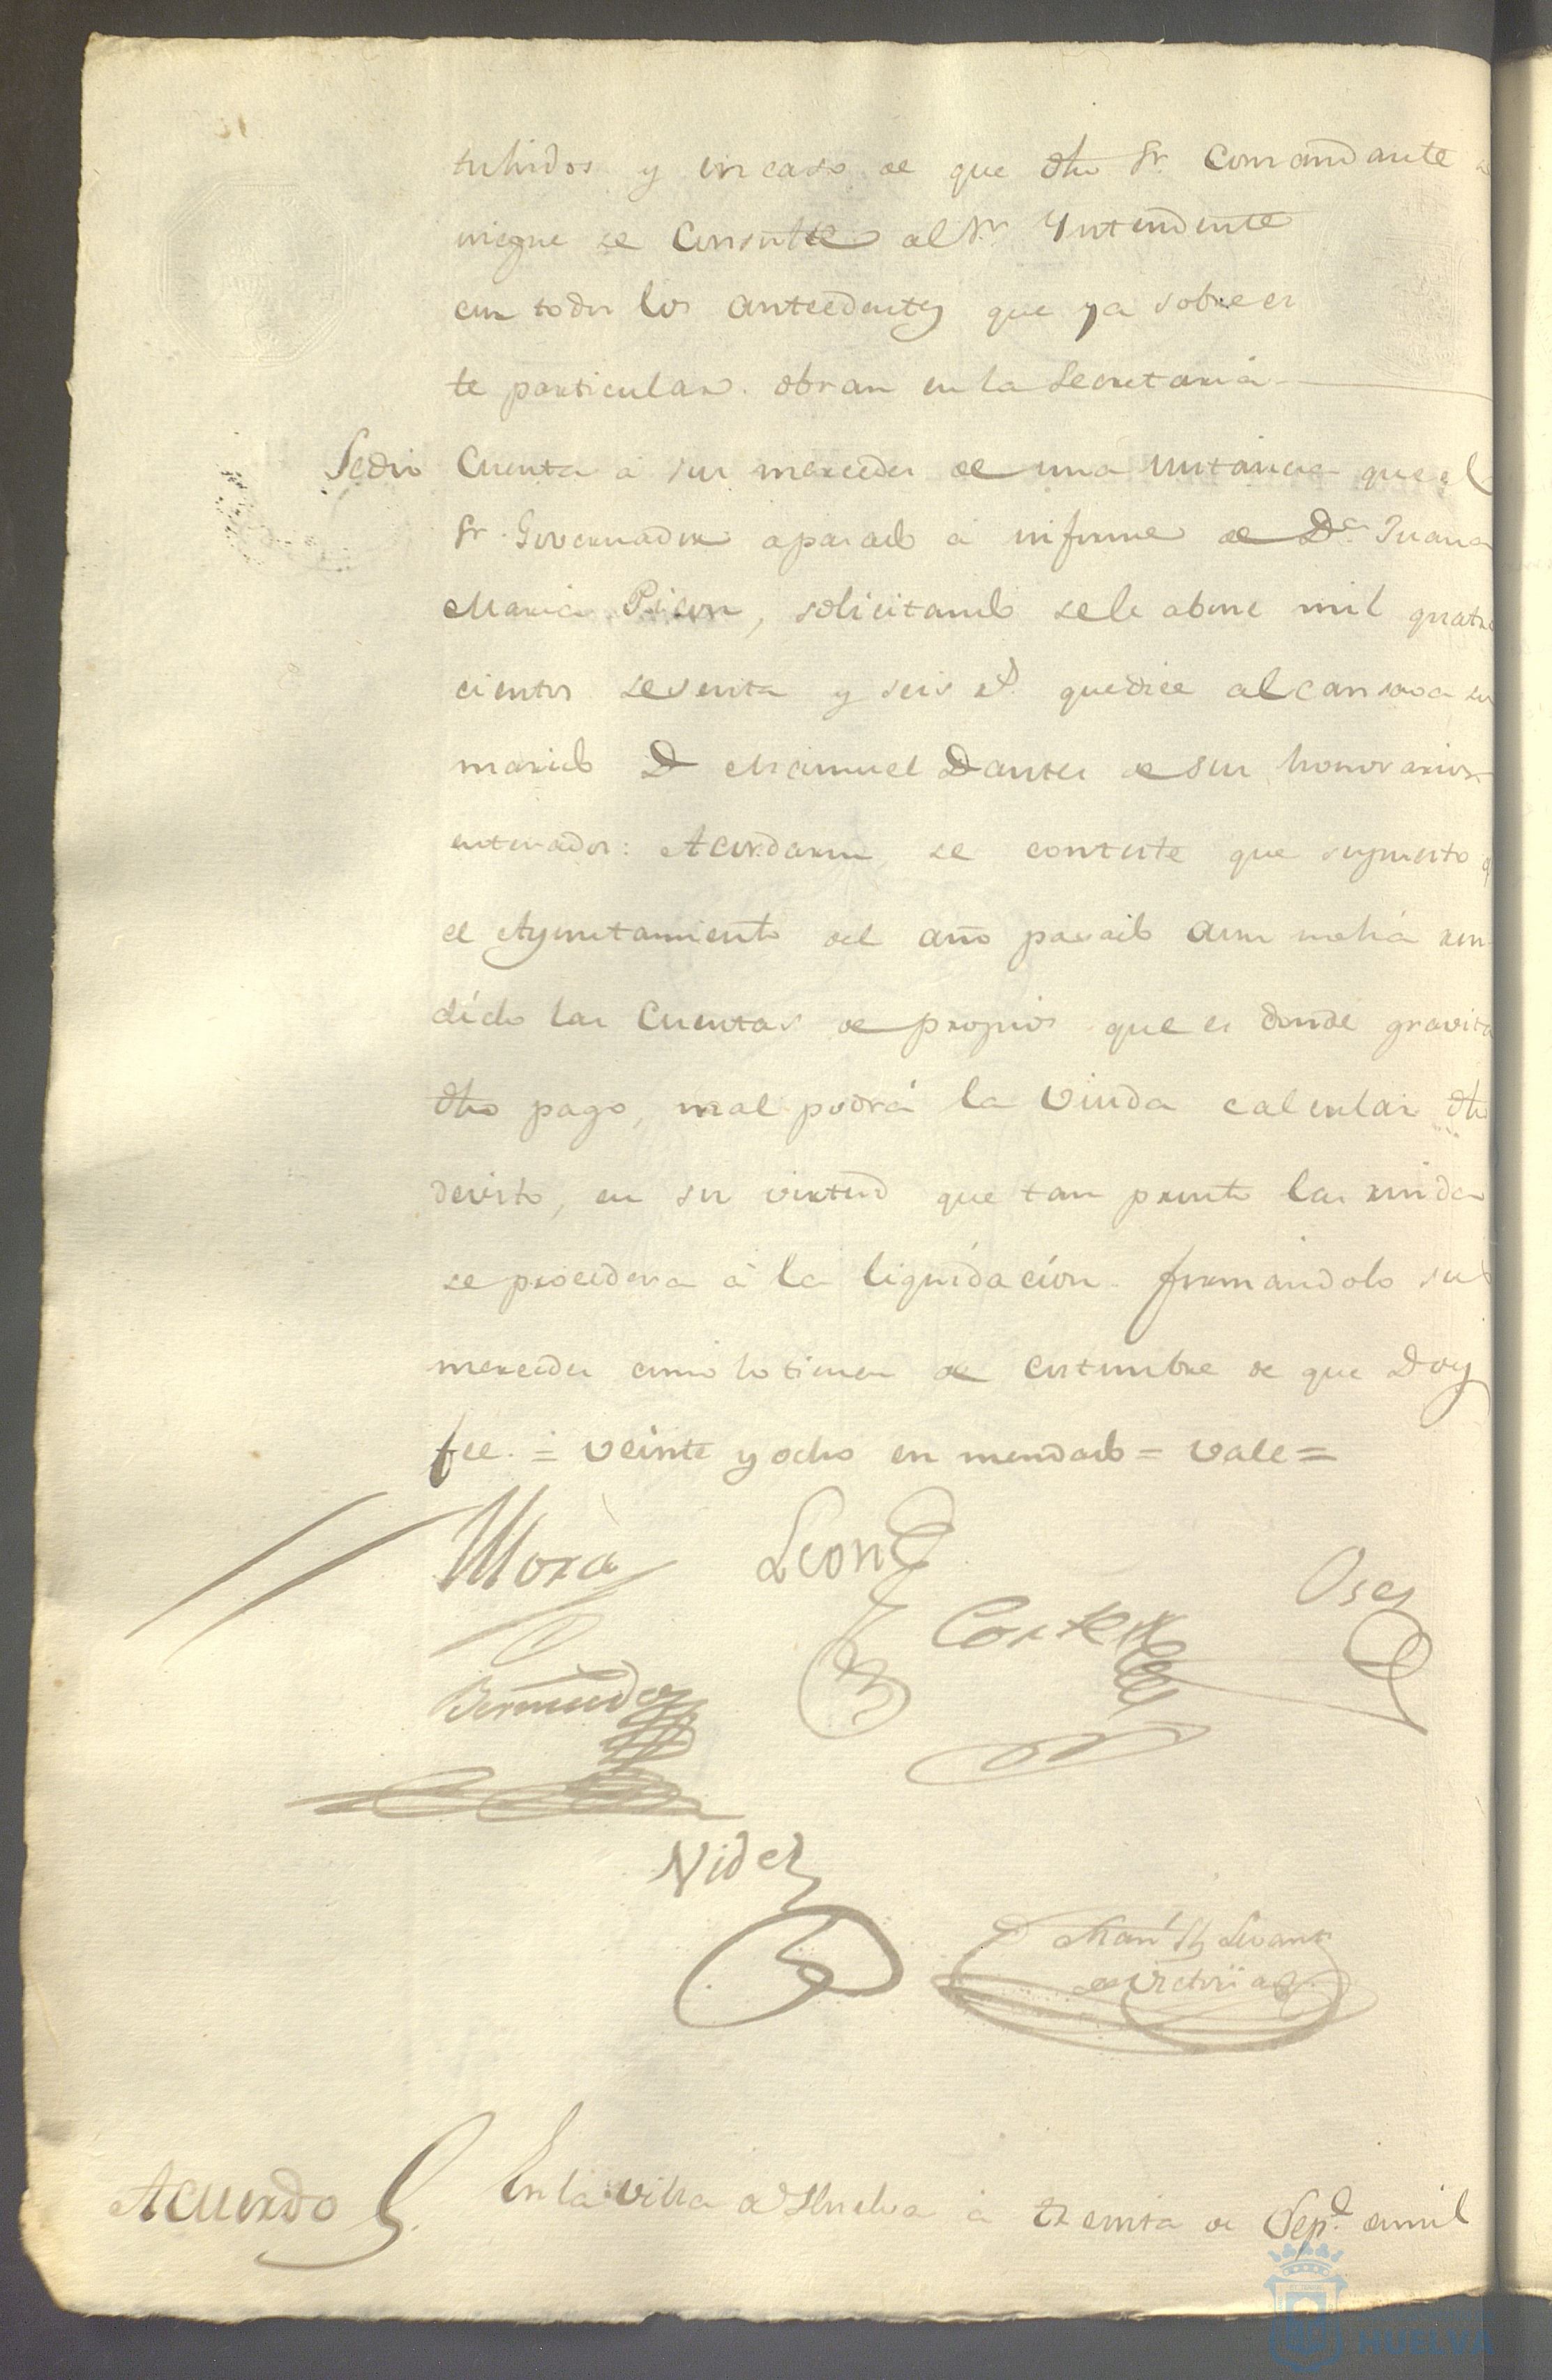 tuhidos y en caso de que dho Sr. Comandante
niegue se consulte al Sr. Yntendente
con todos los antecedentes que ya sobre es
te particular obran en la Secretaria
Sedio Cuenta á sus mercedes de una instancia que el
Sr. Governador apasado á informe de Da. Juana
Maria Picon, solicitando sele abone mil quatro
cientos sesenta y seis rs. quedice alcansava su
marido D Manuel Dantes de sus honorarios
enterados: Acordaron se conteste que supuesto q
el Ayuntamiento del año pasado aun nohá ren
dido las Cuentas de propios que es donde gravita
dho pago, mal podrá la Viuda calcular dho
devito, en su virtud que tan pronto las rinda
se procedera á la liquidación firmándolo sus
mercedes como lo tienen de costumbre de que Doy
fee. = veinte y ocho en mendado = vale =
Mora Leon
Cortes Oses
Bermudez
Vides
Victoria
Acuerdo En la villa de Huelva á treinta de Sepe. demil
HUELVA